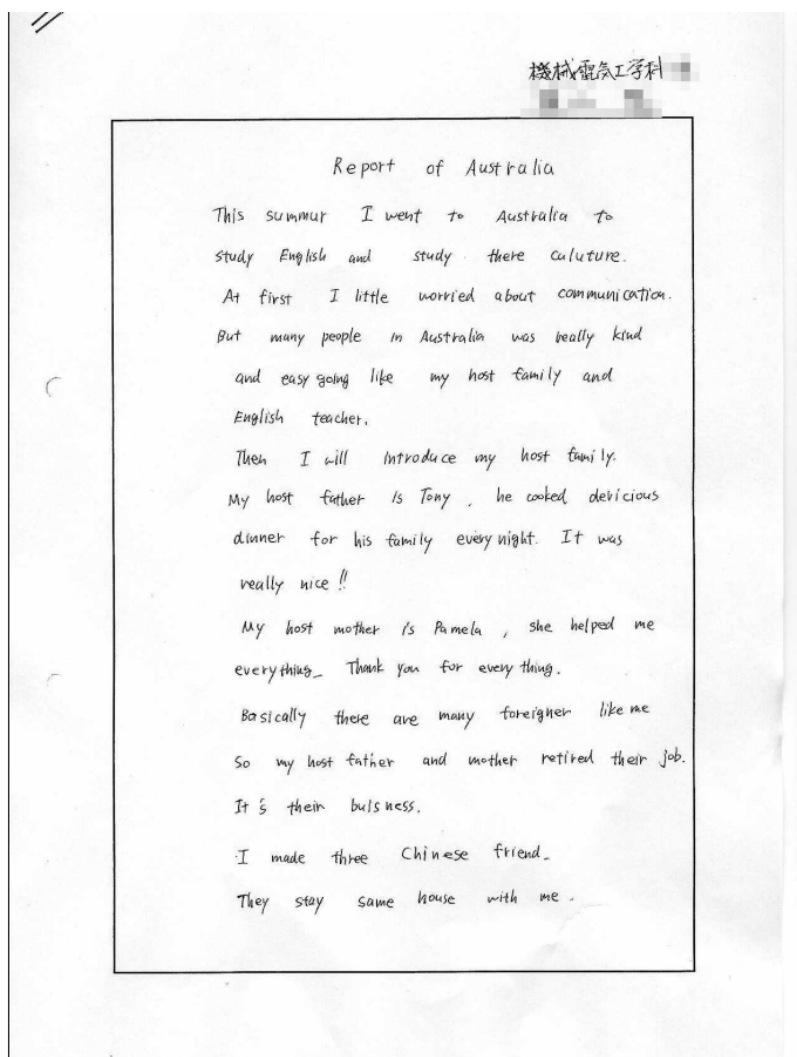 機械電気工学科
Report of Australia
This summur I went to Australia to
study English and study there culuture.
At first I little worried about communication.
But many people in Australia was really kind
and easy going like my host family and
English teacher.
Then I will introduce my host family.
My host father is Tony, he cooked devicious
dinner for his family every night. It was
really nice!!
My host mother is Pamela, she helped me
everything. Thank you for every thing.
Basically there are many foreigner like me
So my host father and mother retired their job.
It's their buisness.
I made three Chinese friend.
They stay same house with me.